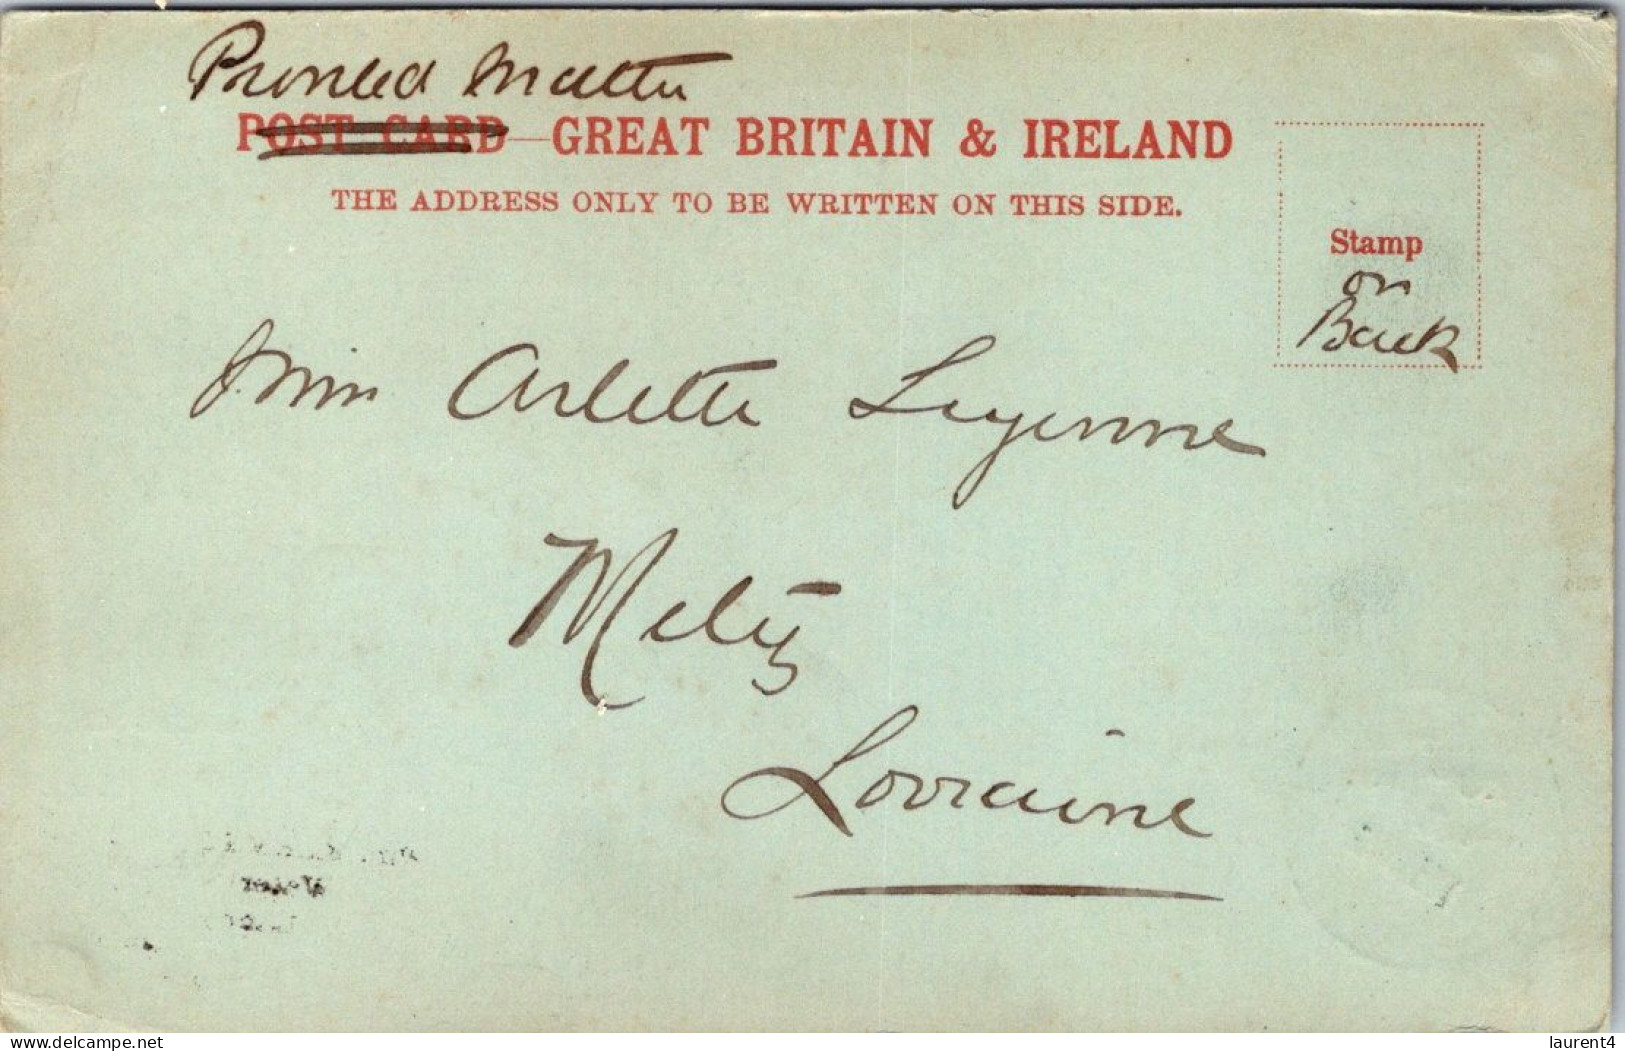 Printed Matter
POST CARD — GREAT BRITAIN & IRELAND
THE ADDRESS ONLY TO BE WRITTEN ON THIS SIDE.
Stamp
on
Back
Miss Arlette
Metz
Lorraine
delcampe.net
laurent4